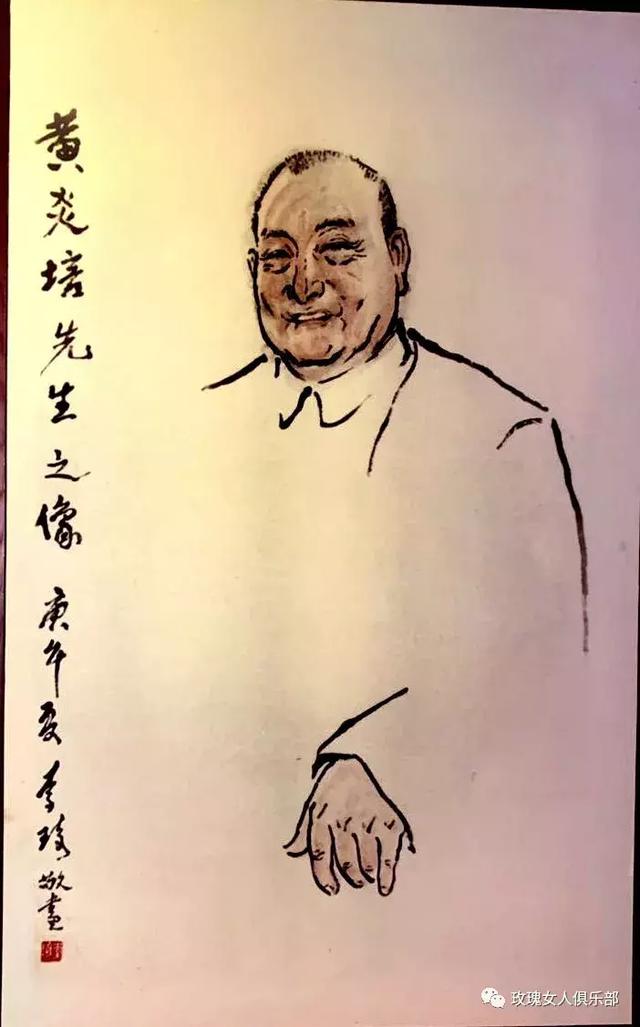 黄炎培先生之像 庚午夏 李琦敬画
玫瑰女人俱乐部